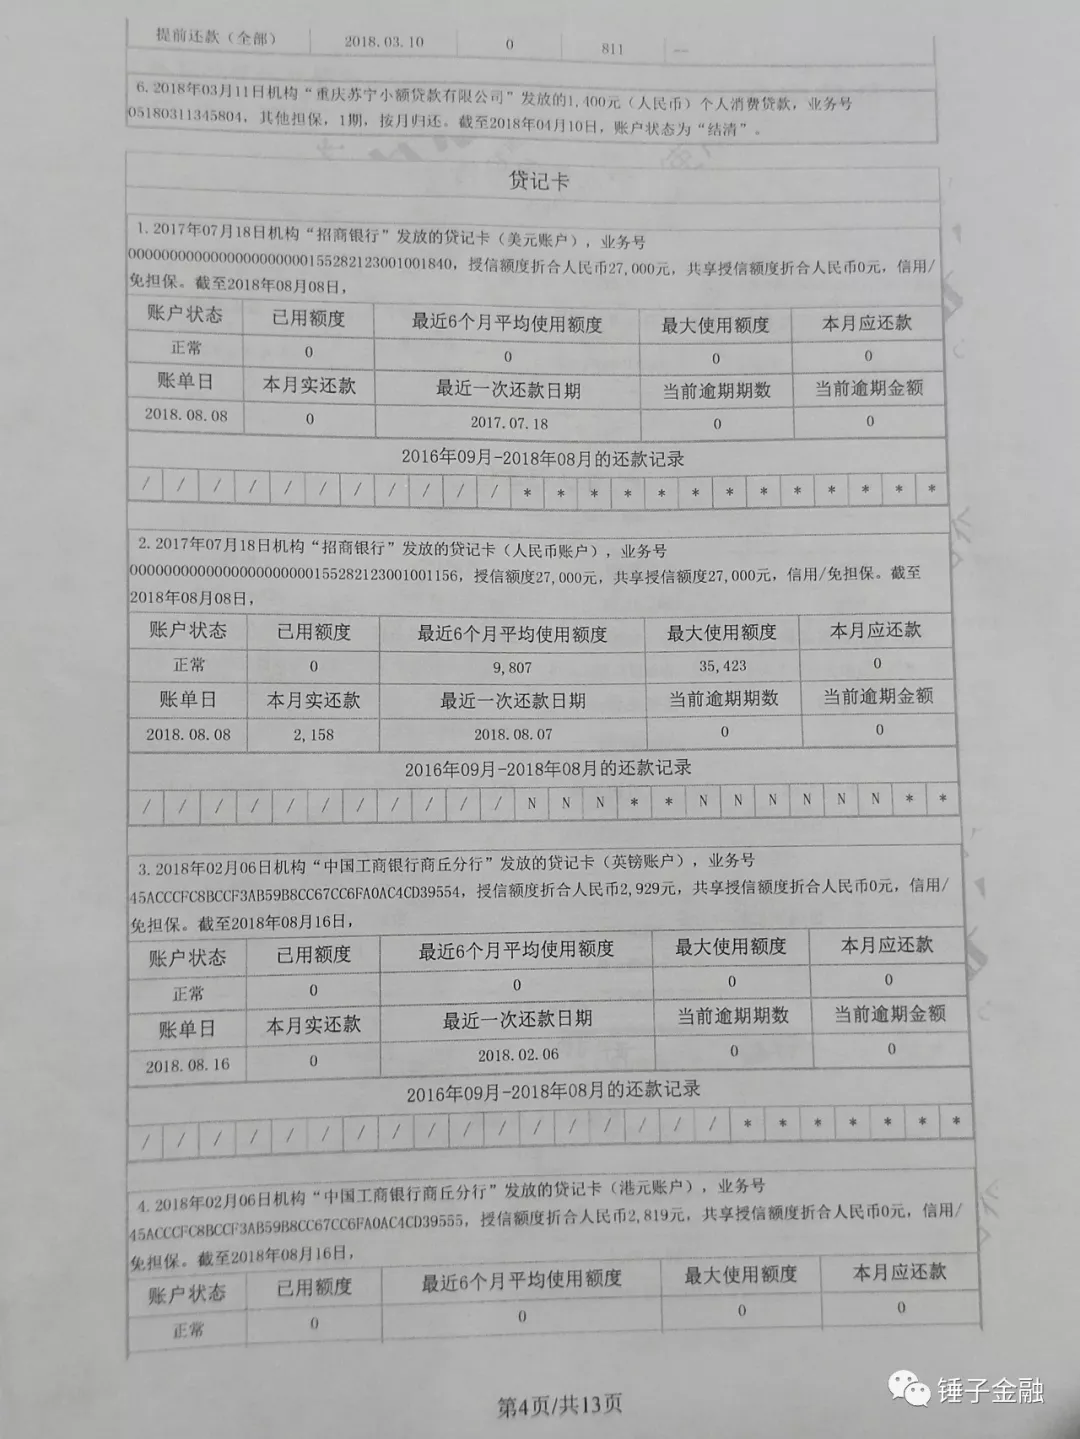 提前还款（全部） 2018.03.10 0 811 --
6.2018年03月11日机构“重庆苏宁小额贷款有限公司”发放的1,400元（人民币）个人消费贷款，业务号
05180311345804，其他担保，1期，按月归还。截至2018年04月10日，账户状态为“结清”。
贷记卡
1.2017年07月18日机构“招商银行”发放的贷记卡（美元账户），业务号
00000000000000000000000155282123001001840，授信额度折合人民币27,000元，共享授信额度折合人民币0元，信用/
免担保。截至2018年08月08日，
账户状态 已用额度 最近6个月平均使用额度 最大使用额度 本月应还款
正常 0 0 0 0
账单日 本月实还款 最近一次还款日期 当前逾期期数 当前逾期金额
2018.08.08 0 2017.07.18 0 0
2016年09月-2018年08月的还款记录
/ / / / / / / / / / / * * * * * * * * * * * * *
2.2017年07月18日机构“招商银行”发放的贷记卡（人民币账户），业务号
00000000000000000000000155282123001001156，授信额度27,000元，共享授信额度27,000元，信用/免担保。截至
2018年08月08日，
账户状态 已用额度 最近6个月平均使用额度 最大使用额度 本月应还款
正常 0 9,807 35,423 0
账单日 本月实还款 最近一次还款日期 当前逾期期数 当前逾期金额
2018.08.08 2,158 2018.08.07 0 0
2016年09月-2018年08月的还款记录
/ / / / / / / / / / / N N N * * N N N N N N * *
3.2018年02月06日机构“中国工商银行商丘分行”发放的贷记卡（英镑账户），业务号
45ACCCFC8BCCF3AB59B8CC67CC6FA0AC4CD39554，授信额度折合人民币2,929元，共享授信额度折合人民币0元，信用/
免担保。截至2018年08月16日，
账户状态 已用额度 最近6个月平均使用额度 最大使用额度 本月应还款
正常 0 0 0 0
账单日 本月实还款 最近一次还款日期 当前逾期期数 当前逾期金额
2018.08.16 0 2018.02.06 0 0
2016年09月-2018年08月的还款记录
/ / / / / / / / / / / / / / / / / * * * * * * *
4.2018年02月06日机构“中国工商银行商丘分行”发放的贷记卡（港元账户），业务号
45ACCCFC8BCCF3AB59B8CC67CC6FA0AC4CD39555，授信额度折合人民币2,819元，共享授信额度折合人民币0元，信用/
免担保。截至2018年08月16日，
账户状态 已用额度 最近6个月平均使用额度 最大使用额度 本月应还款
正常 0 0 0 0
第4页/共13页
锤子金融